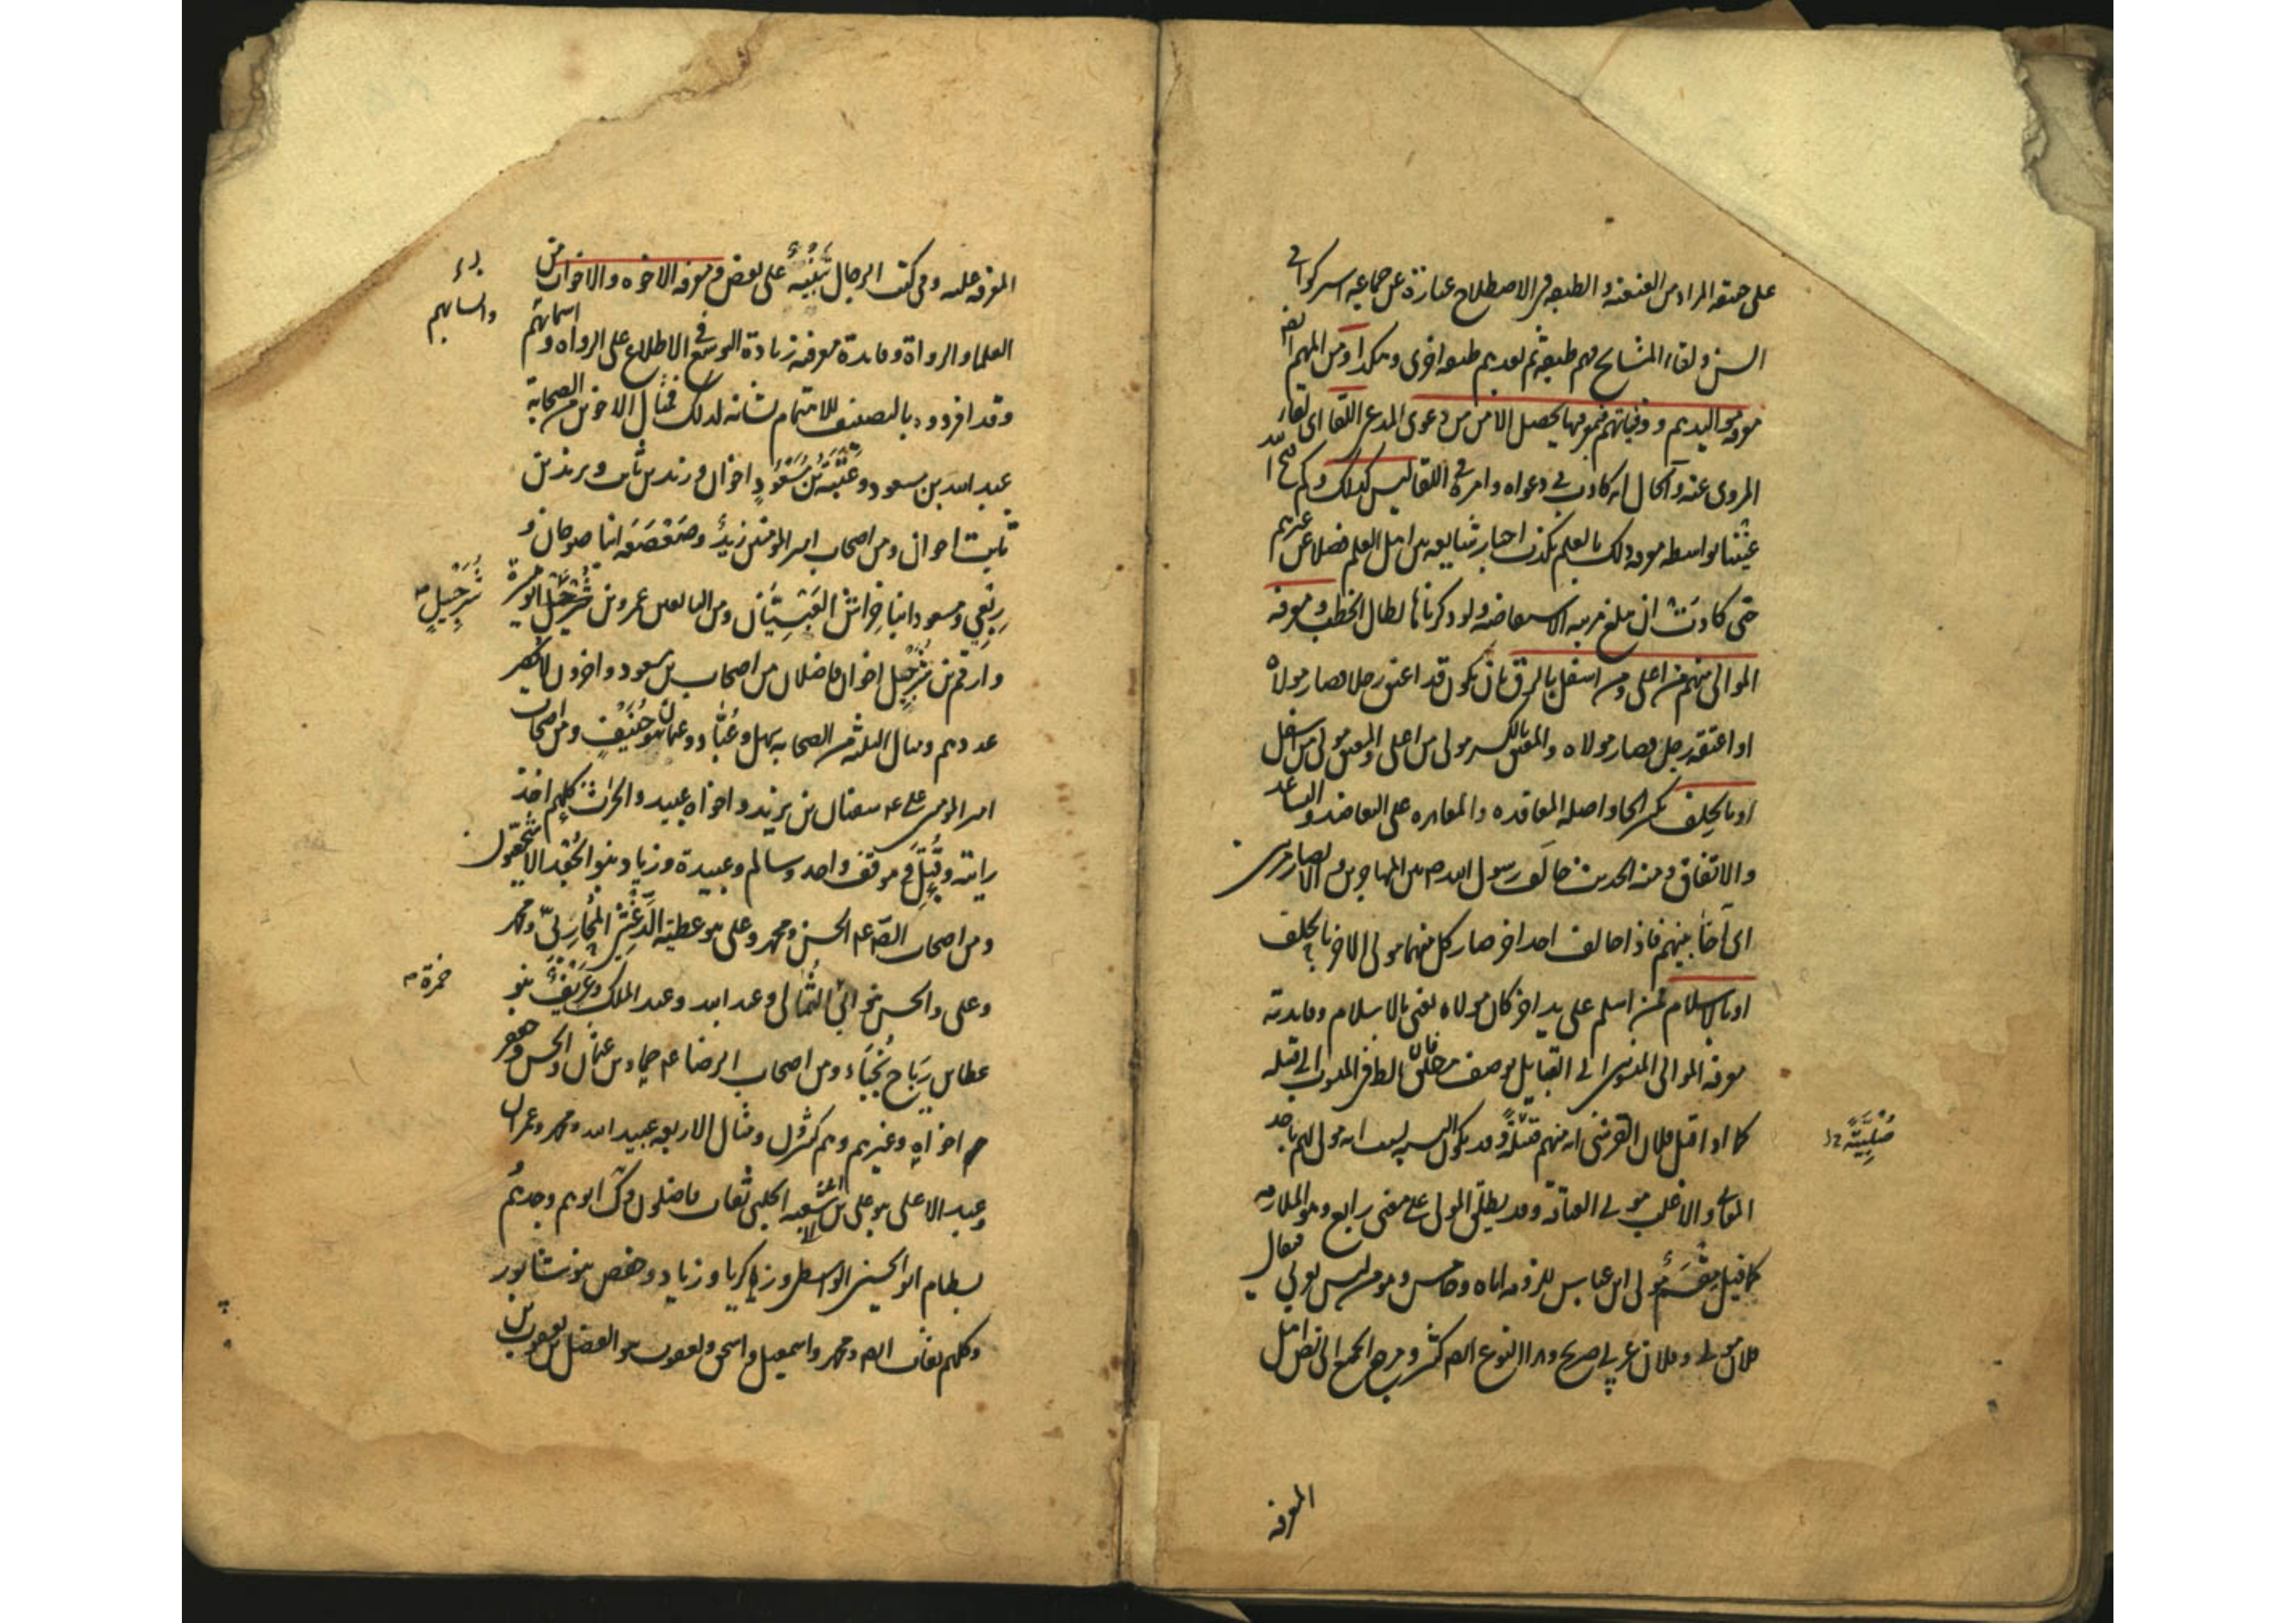 على حقيقة المراد من العنعنة والطبقة في الاصطلاح عبارة عن جماعة اشتركوا في
السن ولقاء المشايخ فهم طبقة ثم بعدهم طبقة اخرى وهكذا ومن المهم ايضا
معرفة مواليدهم ووفياتهم فبمعرفتها يحصل الامن من دعوى المدعي اللقاء اي لقاء
المروي عنه والحال انه كاذب في دعواه وامره في اللقاء ليس كذلك وكم فتح الله
علينا بواسطة معرفة ذلك بالعلم بكذب اخبار شايعة بين اهل العلم فضلا عن غيرهم
حتى كادت ان تبلغ مرتبة الاستفاضة ولو ذكرناها لطال الخطب ومعرفة
الموالي منهم من اعلى ومن اسفل بالرق بان يكون قد اعتق رجلا فصار مولاه
او اعتقه رجل فصار مولاه والمعتق بالكسر مولى من اعلى والمعتق مولى من اسفل
او بالحلف بكسر الحاء واصله المعاقدة والمعاهدة على التعاضد والتساعد
والاتفاق ومنه الحديث حالف رسول الله ص بين المهاجرين والانصار مرتين
اي آخا بينهم فاذا حالف احد اخر صار كل منهما مولى الاخر بالحلف
او بالاسلام فمن اسلم على يد اخر كان مولاه يعني بالاسلام وفايدته
معرفة الموالي المنسوبين الى القبايل بوصف الاطلاق فان الظاهر المنسوب الى قبيلة
كما اذا قيل فلان القرشي انه منهم صلبية وقد يكون النسبة بسبب انه مولى لهم باحد
المعاني والاغلب مولى العتاقة وقد يطلق المولى على معنى رابع وهو الملازمة
كما قيل مقسم مولى ابن عباس للزومه اياه وخامس وهو من ليس بعربي فيقال
فلان مولى وفلان عربي صريح وهذا النوع ايضا كثير ومرجع الجميع الى نص اهل
صلبية
المعرفة
المعرفة عليه وفي كتب الرجال تنبيه على بعض ومعرفة الاخوة والاخوات من
العلماء والرواة وفايدة معرفته زيادة التوسع في الاطلاع على الرواة واسمائهم
وانسابهم
وقد افردوه بالتصنيف للاهتمام بشانه لذلك فمثال الاخوين من الصحابة
عبد الله بن مسعود وعتبة بن مسعود اخوان وزيد بن ثابت ويزيد بن
ثابت اخوان ومن اصحاب امير المؤمنين زيد وصعصعة ابنا صوحان و
ربعي ومسعود ابنا خراش العبسيان ومن التابعين عمرو بن شرحبيل ابو ميسرة
شرحبيل
وارقم بن شرحبيل اخوان فاضلان من اصحاب بن مسعود واخرون لا يحصر
عددهم ومثال الثلثة من الصحابة سهل وعباد وعثمان بنو حنيف ومن اصحاب
امير المؤمنين على ع سفيان بن يزيد واخواه عبيد والحارث كلهم اخذ
رايته وقتل في موقف واحد وسالم وعبيدة وزياد بنو الجعد الاشجعيون
ومن اصحاب الصادق ع الحسن ومحمد وعلي بنو عطية الدغشي المحاربي ومحمد
وعلي والحسن بنو ابي حمزة الثمالي وعبد الله وعبد الملك وعريف بنو
حمزة
عطا بن رباح نجباء ومن اصحاب الرضا ع حماد بن عثمان والحسن وجعفر
اخواه وغيرهم وهم كثيرون ومثال الاربعة عبيد الله ومحمد وعمران
وعبد الاعلى بنو علي بن ابي شعبة الحلبي ثقات فاضلون وكذا ابوهم وجدهم
بسطام ابو الحسين الواسطي وزكريا وزياد وحفص بنو سابور
وكلهم ثقات ايضا ومحمد واسمعيل واسحق ويعقوب بنو الفضل بن يعقوب بن